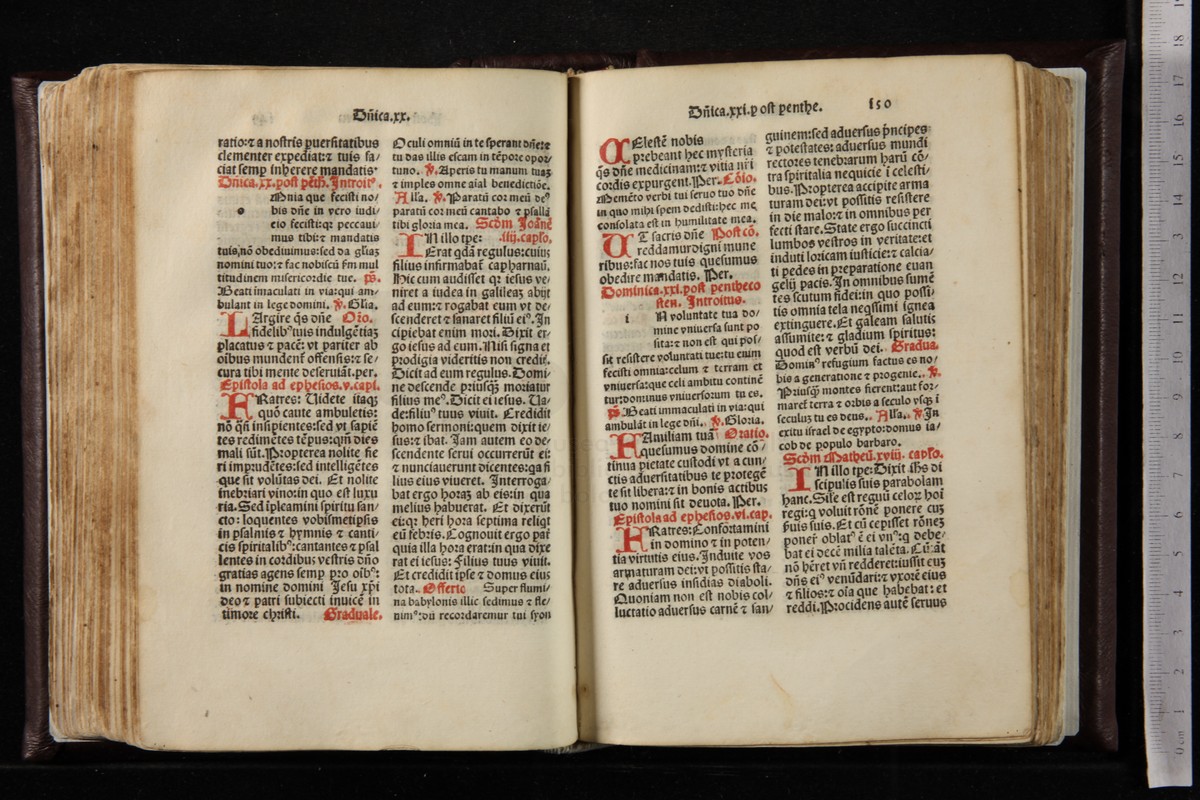 Dñica.xx.
ratio:⁊ a nostris p̱uersitatibus
clementer expediat:⁊ tuis fa/
ciat semp inherere mandatis.
Dñica.xx.post pẽth. Introitꝰ.
Omnia que fecisti no/
bis dñe in vero iudi/
cio fecisti:qꝛ peccaui/
mus tibi:⁊ mandatis
tuis nõ obediuimus:sed da gl̃iaꝫ
nomini tuo:⁊ fac nobiscũ scḋm mul
titudinem misericordie tue. p̃s.
Beati ĩmaculati in via:qui am/
bulant in lege domini. ℣. Glia.
LArgire q̃s dñe Oꝛo.
fidelibꝰ tuis indulgẽtiaꝫ
placatus ⁊ pacẽ: vt pariter ab
oĩbus mundent̃ offensis:⁊ se/
cura tibi mente deseruiãt. per.
Epistola ad ephesios.v.capi.
FRatres: Uidete itaqꝫ
quõ caute ambuletis:
nõ q̃si insipientes:sed vt sapiẽ
tes redimẽtes tẽpus:qm̃ dies
mali sũt. Propterea nolite fie
ri imprudẽtes:sed intelligẽtes
que sit volũtas dei. Et nolite
inebriari vino:in quo est luxu
ria. Sed ĩpleamini spiritu san/
cto: loquentes vobismetipsis
in psalmis ⁊ hymnis ⁊ canti/
cis spiritalibꝰ:cantantes ⁊ psal
lentes in coꝛdibus vestris dño
gratias agens semp pꝛo oĩbꝰ:
in nomine domini Jesu xp̃i
deo ⁊ patri subiecti inuicẽ in
timoꝛe christi. Graduale.
Oculi omniũ in te sperant dñe:⁊
tu das illis escam in tẽpoꝛe opoꝛ/
tuno. ℣. Aperis tu manum tuaꝫ
⁊ imples omne aĩal benedictiõe.
Alla. ℣. Paratũ coꝛ meũ deꝰ
paratũ coꝛ meũ cantabo ⁊ psallã
tibi gloꝛia mea. Scḋm Joãnẽ
IN illo tp̃e: .iiij.capło.
Erat qdã regulus:cuiuꝫ
filius infirmabat̃ capharnaũ.
Hic cum audisset qꝛ iesus ve/
niret a iudea in galileaꝫ abijt
ad eum:⁊ rogabat eum vt de/
scenderet ⁊ sanaret filiũ eiꝰ. In
cipiebat enim moꝛi. Dixit er/
go iesus ad eum. Nisi signa et
pꝛodigia videritis non credit̃.
Dicit ad eum regulus. Domi/
ne descende pꝛiusqꝫ moꝛiatur
filius meꝰ. Dicit ei iesus. Ua/
de:filiꝰ tuus viuit. Credidit
homo sermoni:quem dixit ie/
sus:⁊ ibat. Jam autem eo de/
scendente serui occurrerũt ei:
⁊ nunciauerunt dicentes:qa fi
lius eius viueret. Interroga/
bat ergo hoꝛaꝫ ab eis:in qua
melius habuerat. Et dixerũt
ei:qꝛ heri hoꝛa septima reliqt
eũ febris. Cognouit ergo pat̃
quia illa hoꝛa erat:in qua dixe
rat ei iesus: filius tuus viuit.
Et credidit ip̃se ⁊ domus eius
tota. Offerto Super flumi/
na babylonis illic sedimus ⁊ fle/
uimꝰ:dũ recoꝛdaremur tui syon
Dñica.xxi.p ost penthe. 150
CElestẽ nobis
pꝛebeant hec mysteria
q̃s dñe medicinam:⁊ vitia nr̃i
coꝛdis expurgent. Per. Cõio.
Memẽto verbi tui seruo tuo dñe
in quo mihi spem dedisti:hec me
consolata est in humilitate mea.
UT sacris dñe Postcõ.
reddamur digni mune
ribus:fac nos tuis quesumus
obedire mandatis. Per.
Dominica.xxi.post pentheco
sten. Introitus.
IN voluntate tua do/
mine vniuersa sunt po
sita:⁊ non est qui pos/
sit resistere voluntati tue:tu enim
fecisti omnia:celum ⁊ terram et
vniuersa:que celi ambitu continẽ
tur:dominus vniuersoꝛum tu es.
p̃s. Beati immaculati in via:qui
ambulãt in lege dñi. ℣. Gloꝛia.
FAmiliam tuã Oꝛatio.
quesumus domine cõ/
tinua pietate custodi vt a cun/
ctis aduersitatibus te pꝛotegẽ
te sit libera:⁊ in bonis actibus
tuo nomini sit deuota. Per.
Epistola ad ephesios.vi.cap.
FRatres:Confoꝛtamini
in domino ⁊ in poten/
tia virtutis eius. Induite vos
armaturam dei:vt possitis sta/
re aduersus insidias diaboli.
Quoniam non est nobis col/
luctatio aduersus carnẽ ⁊ san/
guinem:sed aduersus p̃ncipes
⁊ potestates: aduersus mundi
rectoꝛes tenebꝛarum harũ cõ/
tra spiritalia nequicie ĩ celesti/
bus. Pꝛopterea accipite arma
turam dei:vt possitis resistere
in die malo:⁊ in omnibus per
fecti stare. State ergo succincti
lumbos vestros in veritate:et
induti loꝛicam iusticie:⁊ calcia/
ti pedes in pꝛeparatione euan
gelij pacis. In omnibus sumẽ
tes scutum fidei:in quo possi/
tis omnia tela neq̃ssimi ignea
extinguere. Et galeam salutis
assumite:⁊ gladium spiritus:
quod est verbũ dei. Gradua.
Dominꝰ refugium factus es no/
bis a generatione ⁊ pꝛogenie. ℣.
Pꝛiusqꝫ montes fierent:aut foꝛ/
maret̃ terra ⁊ oꝛbis a seculo vsqꝫ ĩ
seculuꝫ tu es deus. Alla. ℣. In
exitu israel de egypto:domus ia/
cob de populo barbaro.
Scḋm Matheũ.xviij. capło.
IN illo tp̃e:Dixit ih̃s di
scipulis suis parabolam
hanc. Sile est regnũ celoꝝ hoĩ
regi:q̃ voluit rõnẽ ponere cuꝫ
ẜuis suis. Et cũ cepisset rõneꝫ
poner̃ oblatꝰ ẽ ei vnꝰ:q̃ debe/
bat ei decẽ milia talẽta. Cũ ãt
nõ hẽret vñ redderet:iussit euꝫ
dñs eiꝰ venũdari:⁊ vxoꝛẽ eius
⁊ filios:⁊ oĩa que habebat: et
reddi. Pꝛocidens autẽ seruus